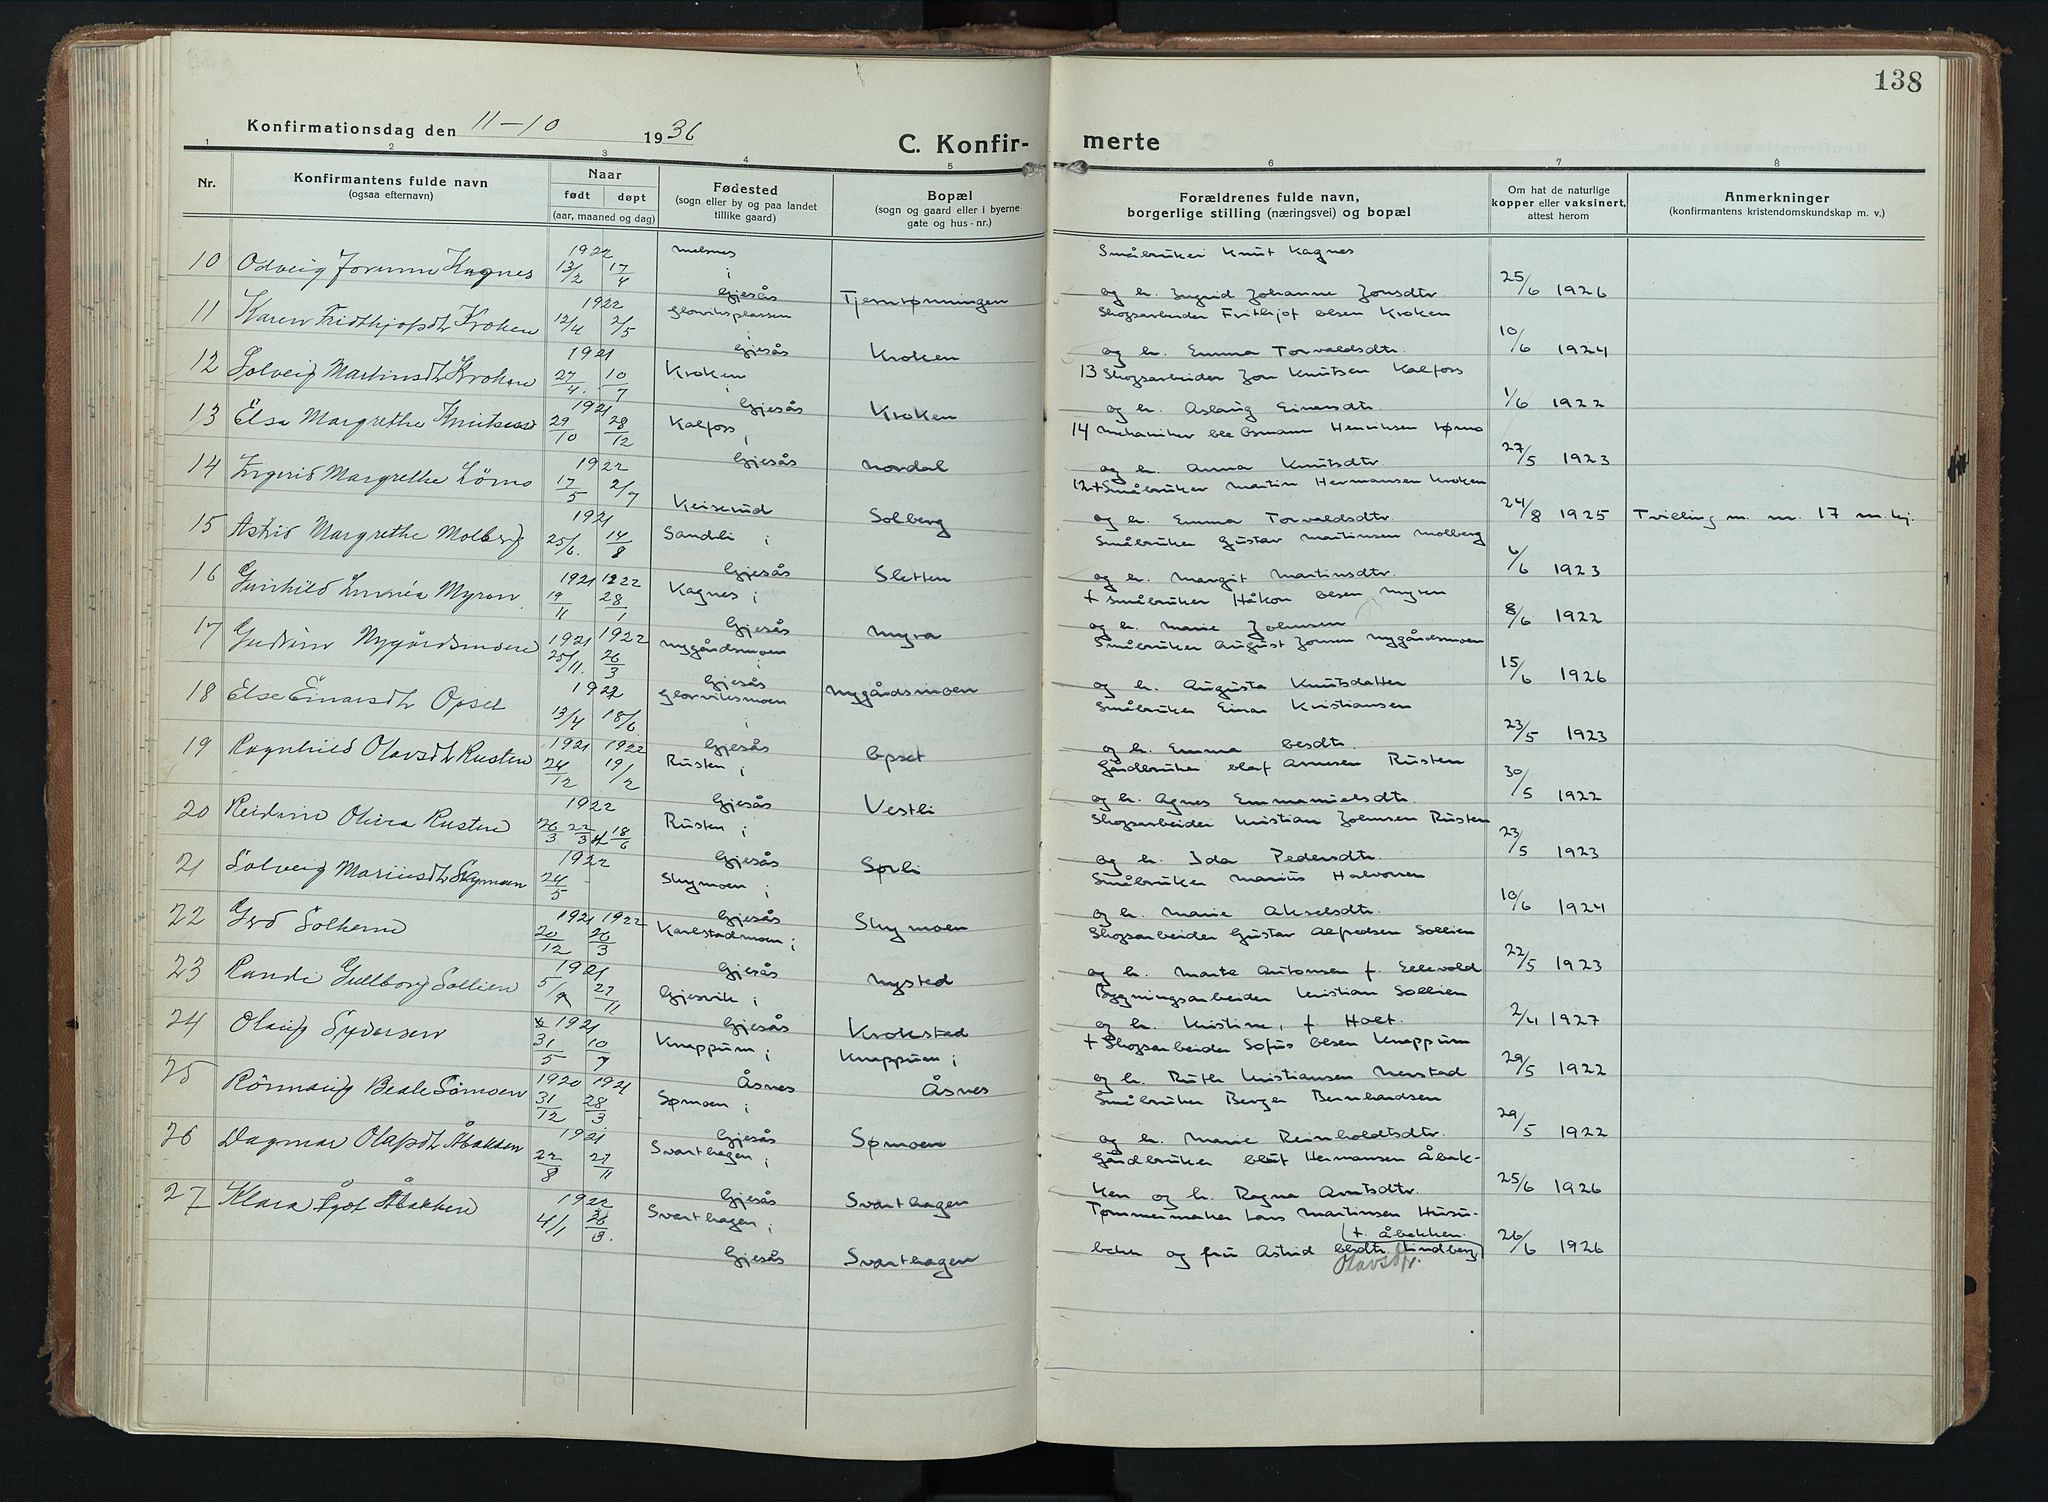 138
Konfirmationsdag den 11-10 1936
C. Konfir- merte
1 2 3 4 5 6 7 8
Nr.
Konfirmantens fulde navn
(ogsaa efternavn)
Naar
født døpt
(aar, maaned og dag)
Fødested
(sogn eller by og paa landet
tillike gaard)
Bopæl
(sogn og gaard eller i byerne
gate og hus-nr.)
Forældrenes fulde navn,
borgerlige stilling (næringsvei) og bopæl
Om hat de naturlige
kopper eller vaksinert,
attest herom
Anmerkninger
(konfirmantens kristendomskundskap m. v.)
1922 Småbruker Knut Kagnes
10 Odveig Jorunn Kagnes 13/2 17/4 i Gjesås Tjernrønningen og h. Ingrid Johanne Jonsdtr. 25/6 1926
1922 Skogsarbeider Frithjof Olsen Kroken
11 Karen Fridthjofsdt Kroken 12/4 2/5 Gjesås Kroken og h. Emma Torvaldsdtr. 10/6 1924
1921 13 Skogsarbeider Jon Knutsen Kalfoss
12 Solveig Martinsdt Kroken 27/4. 10/7 Kroken i Gjesås Kroken og h. Aslaug Einarsdtr. 1/6 1922
1921 14 Mekaniker Ole Osmann Henriksen Lørno
13 Else Margrethe Knutsen 29/10 28/12 Kalfoss i Gjesås Nordal og h. Anna Knutsdtr 27/5 1923
1922 12 + Småbruker Martin Hermansen Kroken
14 Ingerid Margrethe Lørno 17/5 2/7 Keiserud Solberg og h. Emma Torvaldsdtr. 24/8 1925 Tvilling m. nr. 17 m. kj.
1921 Småbruker Gustav Martinsen Molberg
15 Astrid Margrethe Molberg 25/6. 14/8 Sandli i Gjesås Sletten og h. Margit Martinsdtr. 6/6 1923
1921 1922 + Småbruker Håkon Olsen Myren
16 Gunhild Linnéa Myren 19/11 28/1 Kagnes i Gjesås Myra og h. Marie Johnsen 8/6 1922
1921 1922 Småbruker August Jonsen Nygårdsmoen
17 Gudrun Nygårdsmoen 25/11. 26/3 Nygårdsmoen i Gjesås Nygårdsmoen og h. Augusta Knutsdatter 15/6 1926
1922 Småbruker Einar Kristiansen
18 Else Einarsdt Opset 13/4 18/6 Glorviksmoen i Gjesås Opset og h. Emma Olsdtr. 23/5 1923
1921 1922 Gårdbruker Olaf Arnesen Rusten
19 Ragnhild Olavsdt Rusten 24/12 19/2 Rusten i Gjesås Vestli og h. Agnes Emmanielsdtr. 30/5 1922
1922 Skogsarbeider Kristian Johnsen Rusten
20 Reidun Olivia Rusten 26/3 18/6 Rusten i Gjesås Sørli og h. Ida Pedersdtr. 23/5 1923
1922 Småbruker Marius Halvorsen
21 Solveig Mariusdt Skymoen 24/5 Skymoen i Gjesås Skymoen og h. Marie Akselsdtr. 10/6 1924
1921 1922 Skogsarbeider Gustav Alfredsen Sollien
22 Gerd Solhermo 20/12 26/3 Karlstadmoen i Gjesås Nysted og h. Marte Antonsen f. Ellevold 22/5 1923
1921 Bygningsarbeider Kristian Sollien
23 Randi Gullborg Sollien 5/9 27/11 Gjesvik i Gjesås Krokstad og h. Kristine, f. Holt. 2/4 1927
1921 + Skogsarbeider Sofus Olsen Knappum
24 Olaug Syversen 31/5 10/7 Knappum i Åsnes Knappum i Åsnes og h. Ruth Kristiansen Nerstad 29/5 1922
1920 1921 Småbruker Berger Bernhardsen
25 Rønnaug Beate Sømoen 31/12 28/3 Sømoen i Gjesås Sømoen og h. Marie Reinholdtsdtr. 29/5 1922
1921 Gårdbruker Oluf Hermansen Åbak-
26 Dagmar Olafsdt Åbakken 22/8 27/11 Svarthagen i Gjesås Svarthagen ken og h. Ragna Arntsdtr. 25/6 1926
1922 Tømmermaker Lars Martinsen Husu-
27 Klara Åbakken 4/1 26/3. Svarthagen i Gjesås Svarthagen bekk og fru Astrid Olsdtr. Lindberg f. Åbakken. 26/6 1926
Olavsdtr.